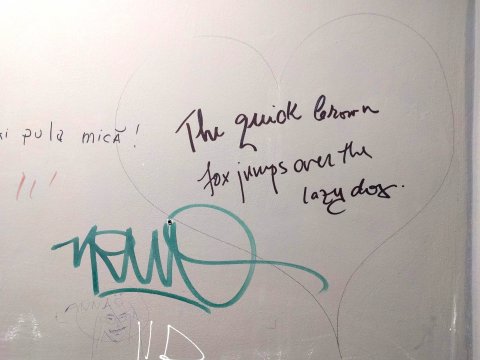 The quick brown
fox jumps over the
lazy dog.
i pula mică!
ANNA